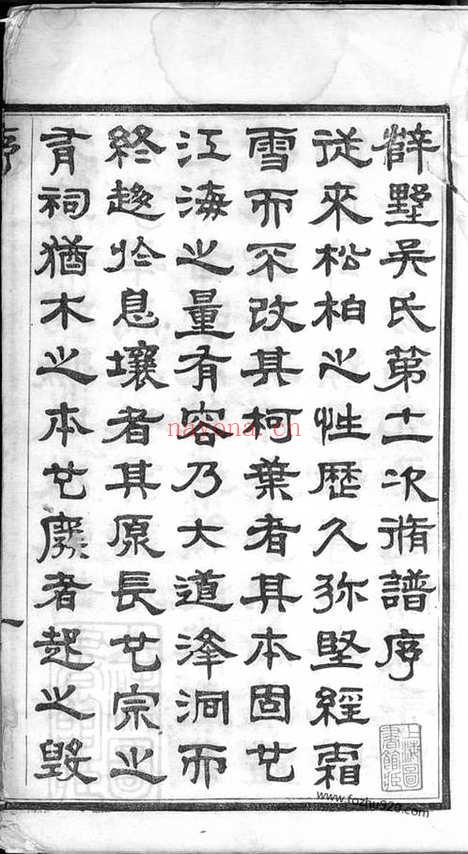 薛墅吳氏第十一次脩譜序
從來松柏之性歷久弥堅經霜
雪而不改其柯葉者其本固也
江海之量有容乃大道洚洞而
終趍於息壤者其原長也宗之
有祠猶木之本也廢者起之毀
序
一
上海圖書館藏
nayona.cn
www.fozhu920.com